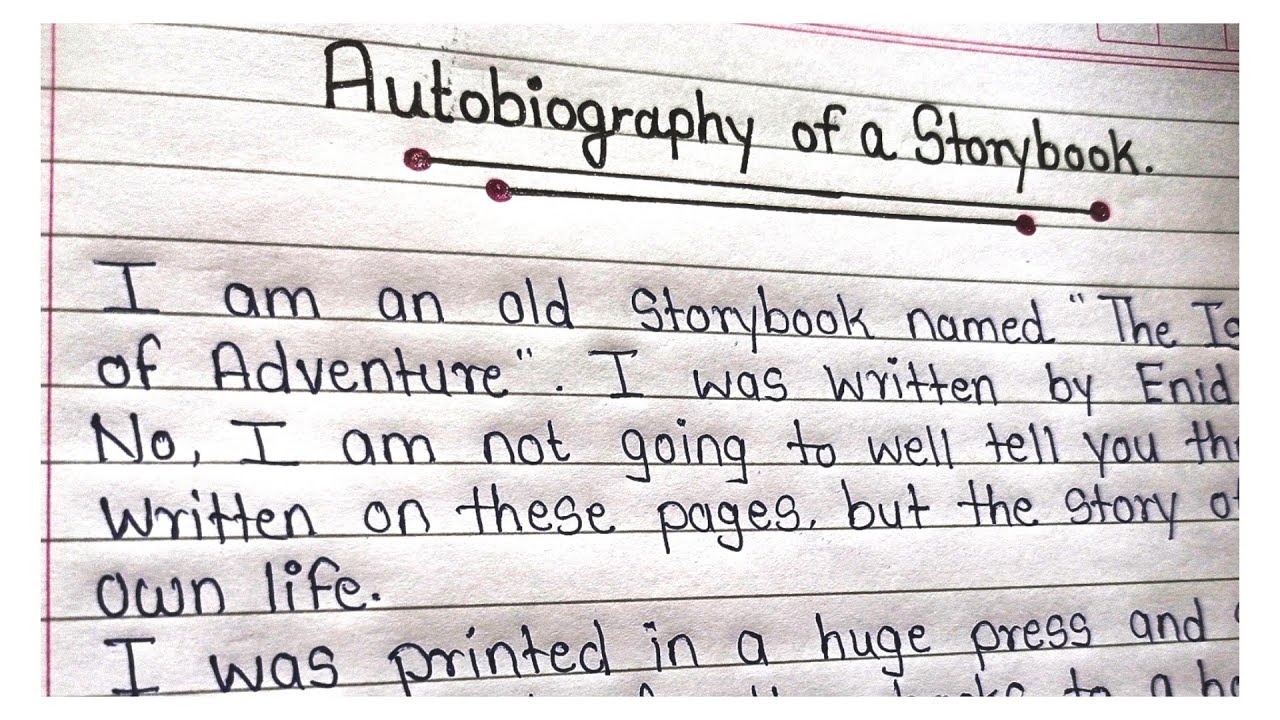 Autobiography of a Storybook.
I am an old Storybook named "The
of Adventure". I was written by Enid
No, I am not going to well tell you
written on these pages. but the story
own life.
I was printed in a huge press and
to a